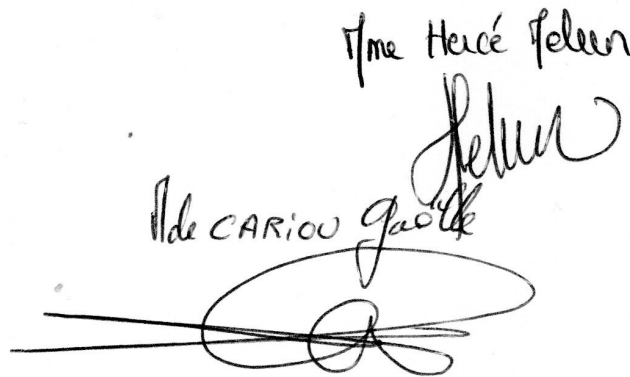 Mme Hercé Meleen
Mde CARIOU Gaëlle